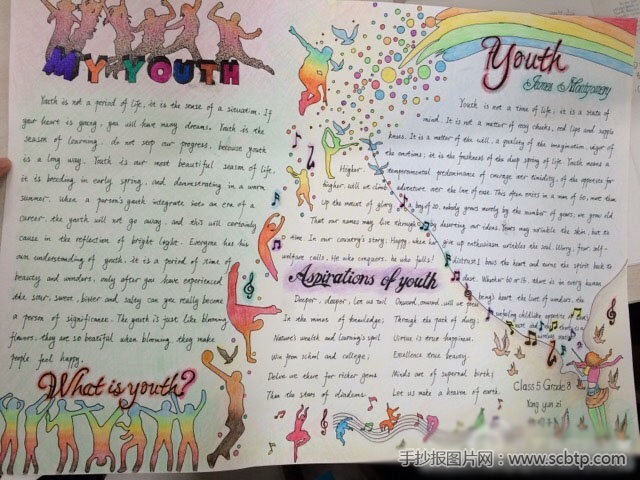 MY YOUTH
Youth is not a period of life, it is the sense of a situation. If
your heart is young, you will have many dreams. Youth is the
season of learning, do not stop our progress, because youth
is a long way. Youth is our most beautiful season of life,
it is breeding in early spring, and demonstrating in a warm
summer. When a person's youth integrate into an era of a
career, the youth will not go away, and this will certainly
cause in the reflection of bright light. Everyone has his
own understanding of youth, it is a period of time of
beauty and wonders, only after you have experienced
the sour, sweet, bitter and salty can you really become
a person of significance. The youth is just like blooming
flowers, they are so beautiful when blooming, they make
people feel happy.
What is youth?
Youth
James Montgomery
Youth is not a time of life; it is a state of
mind. It is not a matter of rosy cheeks, red lips and supple
knees. It is a matter of the will, a quality of the imagination, vigor of
the emotions; it is the freshness of the deep spring of life. Youth means a
temperamental predominance of courage over timidity, of the appetite for
adventure over the love of ease. This often exists in a man of 60, more than
a boy of 20, nobody grows merely by the number of years; we grow old
by deserting our ideas. Years may wrinkle the skin, but to
give up enthusiasm wrinkles the soul. Worry, fear, self-
distrust; bows the heart and turns the spirit back to
dust. Whether 60 or 16, there is in every human
being's heart the lure of wonders, the
unfailing childlike appetite
Higher,
higher will we climb
Up the mount of glory
That our names may live through
time In our country's story; Happy, when her
welfare calls, He who conquers, he who falls!
Aspirations of youth
Deeper, deeper, Let us toil
In the mines of knowledge;
Nature's wealth and learning's spoil
Win from school and college;
Delve we there for richer gems
Than the stars of diadems.
Onward, onward, will we press
Through the path of duty;
Virtue is true happiness,
Excellence true beauty.
Minds are of supernal birth;
Let us make a heaven of earth.
Class 5 Grade 8
Yang yun zi
手抄报图片网：www.scbtp.com